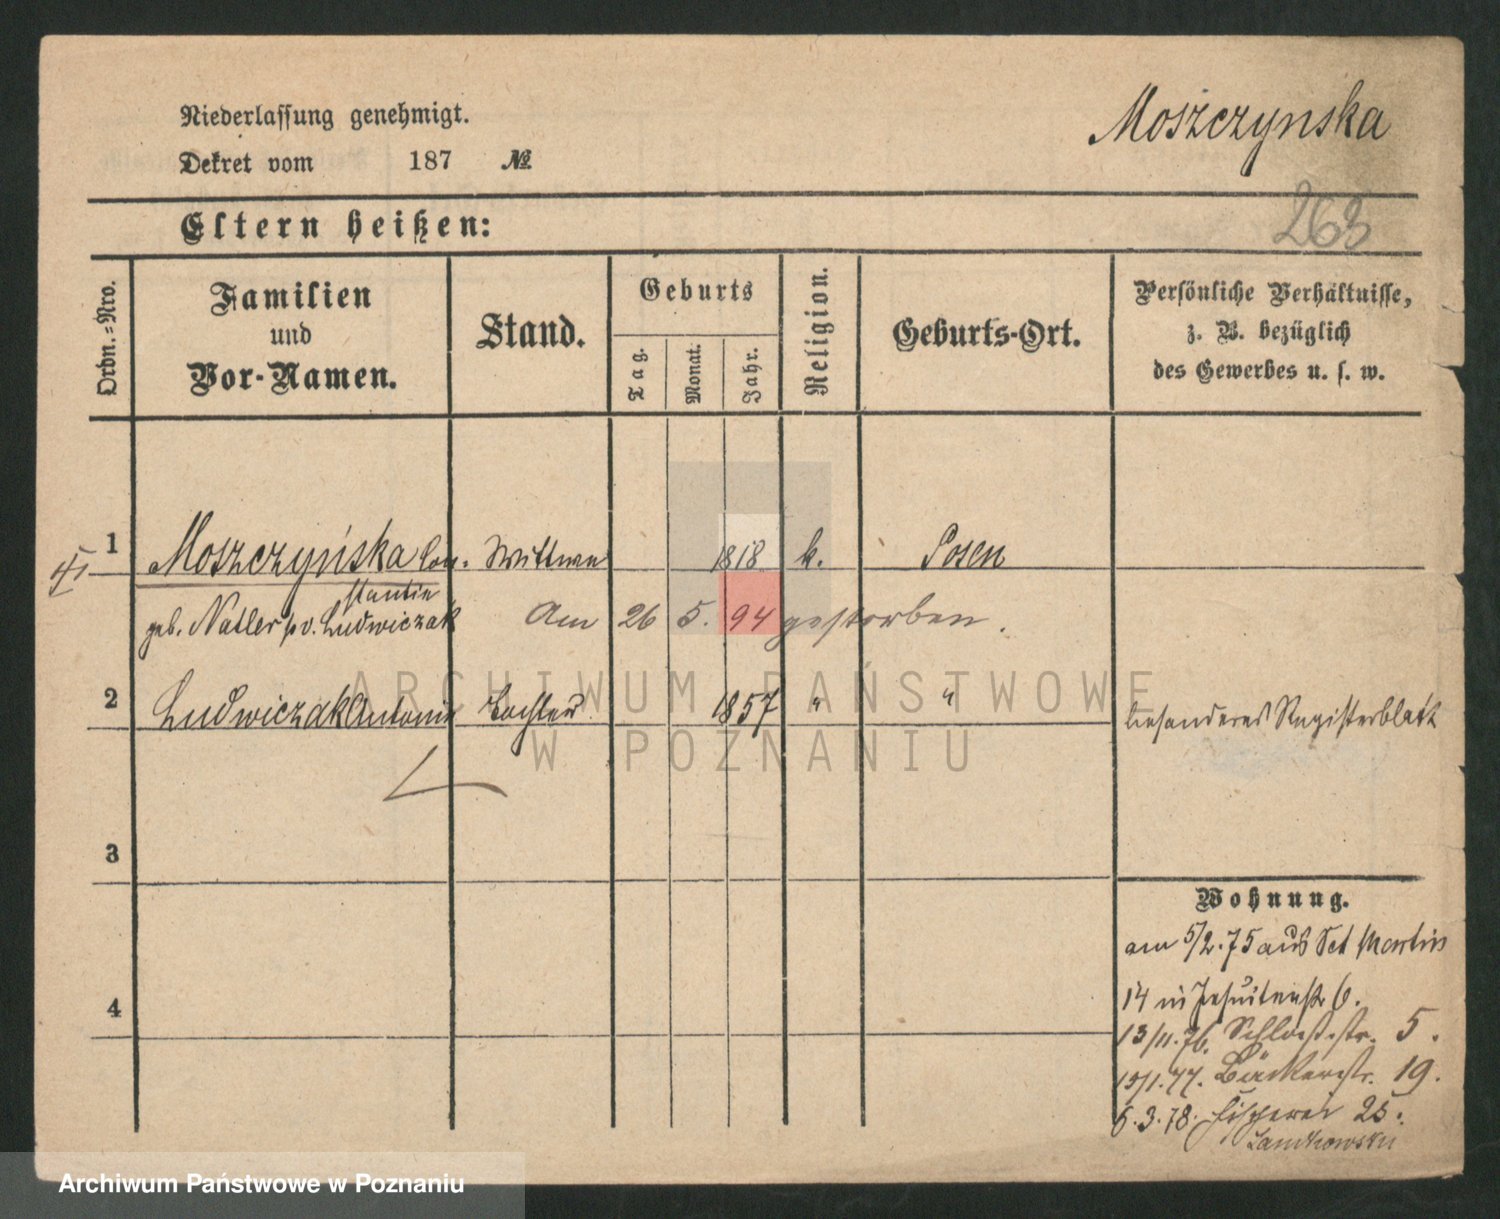 Niederlassung genehmigt.
Moszczynska
Dekret vom 187 №
263
Eltern heißen:
Ordn.=Nro.
Familien
und
Vor-Namen.
Stand.
Geburts
Tag.
Monat.
Jahr.
Religion.
Geburts-Ort.
Persönliche Verhältnisse,
z. B. bezüglich
des Gewerbes u. s. w.
1 Moszczyńska Con- Wittwe 1818 k. Posen
stantia
geb. Natler p v. Ludwiczak
Am 26 5. 94 gestorben.
2 Ludwiczak Antonie Tochter 1857 " "
besonderes Registerblatt
3
4
Wohnung.
am 5/2.75 aus Sct Martin
14 in Jesuitenstr 6.
13/11.76. Schloßstr. 5.
15/1.77. Bäckerstr. 19.
6.3.78. Fischerei 25.
ARCHIWUM PAŃSTWOWE
W POZNANIU
Archiwum Państwowe w Poznaniu